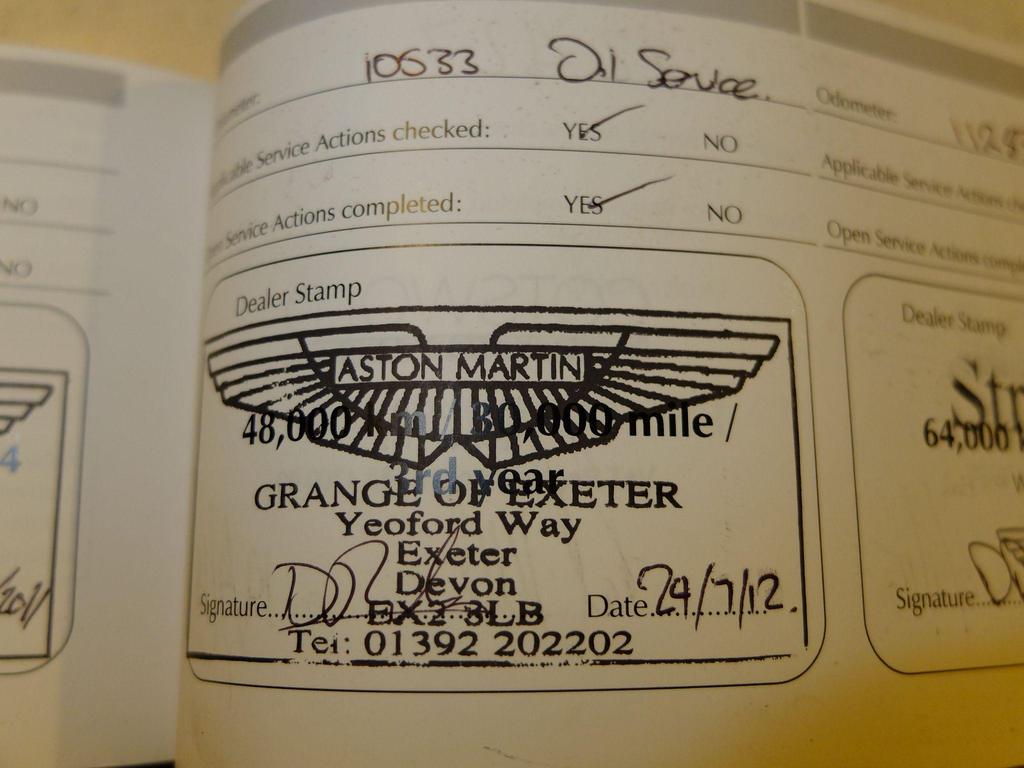 10533 Oil Service.
Service Actions checked: YES NO
Service Actions completed: YES NO
Dealer Stamp
ASTON MARTIN
48,000 km / 30,000 mile /
3rd year
GRANGE OF EXETER
Yeoford Way
Exeter
Devon
EX2 3LB
Signature... Date... 24/7/12.
Tel: 01392 202202
NO
NO
4
Odometer:
Applicable Service Actions
Open Service Actions
Dealer Stamp
64,000
Signature...